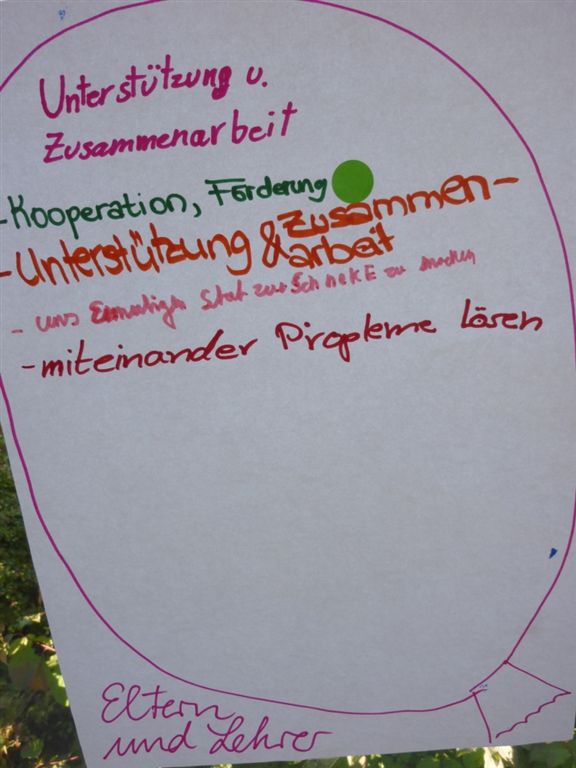 Unterstützung u.
Zusammenarbeit
-Kooperation, Förderung
-Unterstützung & Zusammen-
arbeit
- uns Ermutigen zu machen
-miteinander Propleme lösen
Eltern
und Lehrer